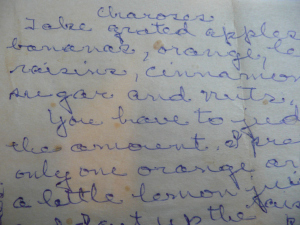 Charoses
Take grated apples
bananas, orange, le
raisins, cinnamon
sugar and nuts.
You have to jud
the amount. I pre
only one orange an
a little lemon jui
up the